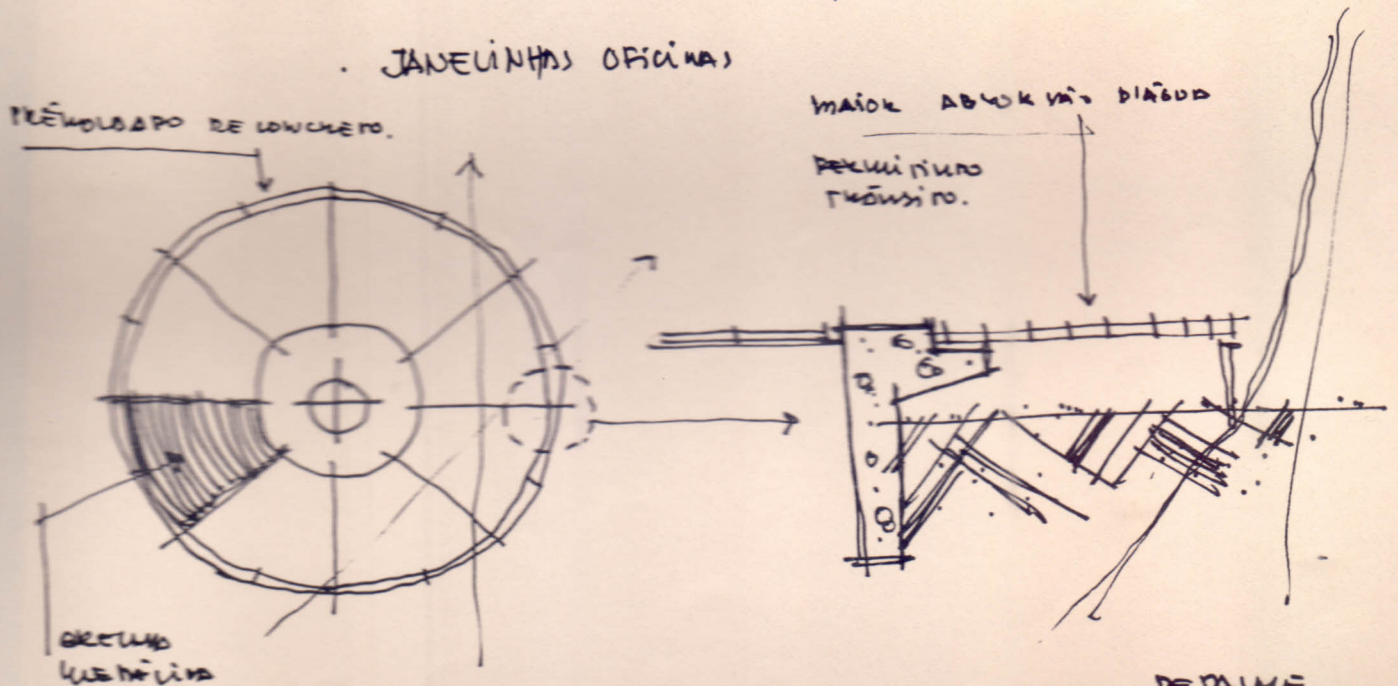 . JANELINHAS OFICINAS
PRÉMOLDADO DE CONCRETO.
MAIOR ABSORÇÃO D'ÁGUA
PERMITINDO
TRÂNSITO.
GRELHA
METÁLICA
DETALHE